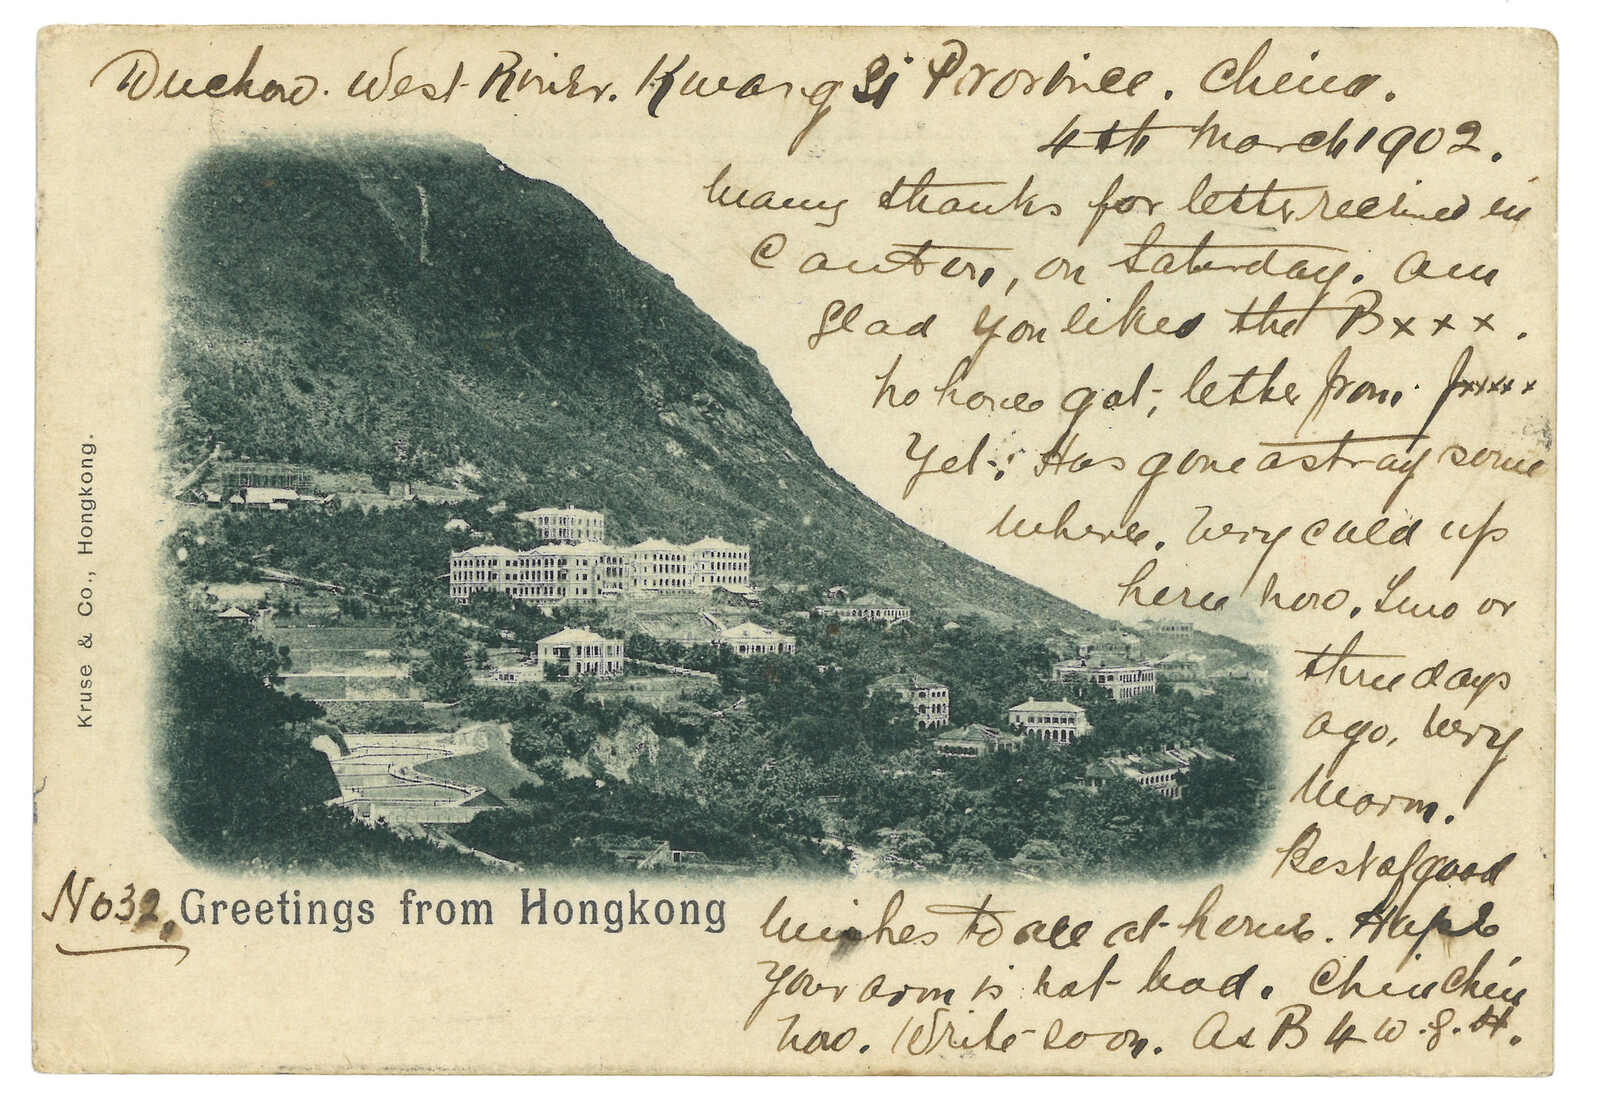 Wuchow. West River. Kwang Si Province. China.
4th March 1902.
Many thanks for letter received in
Canton, on Saturday. Am
glad you likes the Bxxx.
No have got, letter from fxxxx
Yet. Has gone astray some
where. Very cold up
here now. Two or
three days
ago, very
warm.
Best of good
wishes to all at home. Hope
your arm is not bad. Chin Chin
now. Write soon. As B 4 W.G.H.
No 32.
Greetings from Hongkong
Kruse & Co., Hongkong.